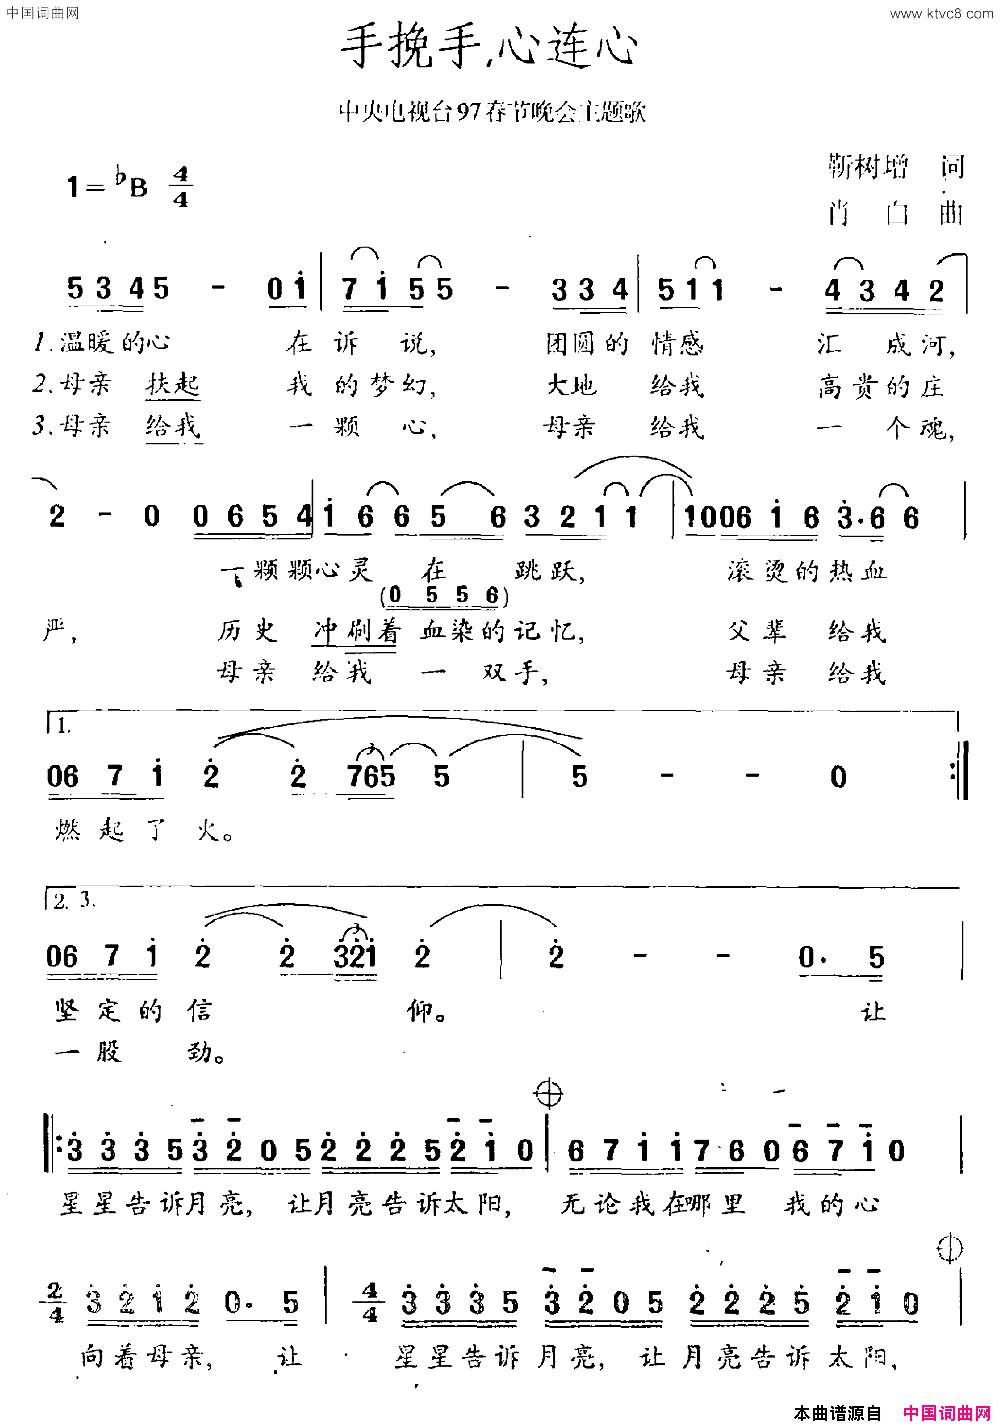 中国词曲网
www.ktvc8.com
手挽手,心连心
中央电视台97春节晚会主题歌
1=♭B 4/4
靳树增 词
肖白 曲
5 3 4 5 - 0 1 | 7 1 5 5 - 3 3 4 | 5 1 1 - 4 3 4 2
1.温暖的心 在诉说, 团圆的情感 汇成河,
2.母亲扶起 我的梦幻, 大地给我 高贵的庄
3.母亲给我 一颗心, 母亲给我 一个魂,
2 - 0 0 6 5 4 | 1 6 6 5 6 3 2 1 1 | 1 0 0 6 1 6 3·6 6
一颗颗心灵在跳跃, 滚烫的热血
(0 5 5 6)
严, 历史冲刷着血染的记忆, 父辈给我
母亲给我一双手, 母亲给我
1.
0 6 7 1 2 2 7 6 5 5 | 5 - - 0 :|
3
燃起了火。
2. 3.
0 6 7 1 2 2 3 2 1 2 | 2 - - 0· 5
3
坚定的信仰。 让
一股劲。
|: 3 3 3 5 3 2 0 5 2 2 2 5 2 1 0 | 6 7 1 1 7 6 0 6 7 1 0
星星告诉月亮, 让月亮告诉太阳, 无论我在哪里 我的心
2/4 3 2 1 2 0· 5 | 4/4 3 3 3 5 3 2 0 5 2 2 2 5 2 1 0
向着母亲, 让 星星告诉月亮, 让月亮告诉太阳,
本曲谱源自 中国词曲网